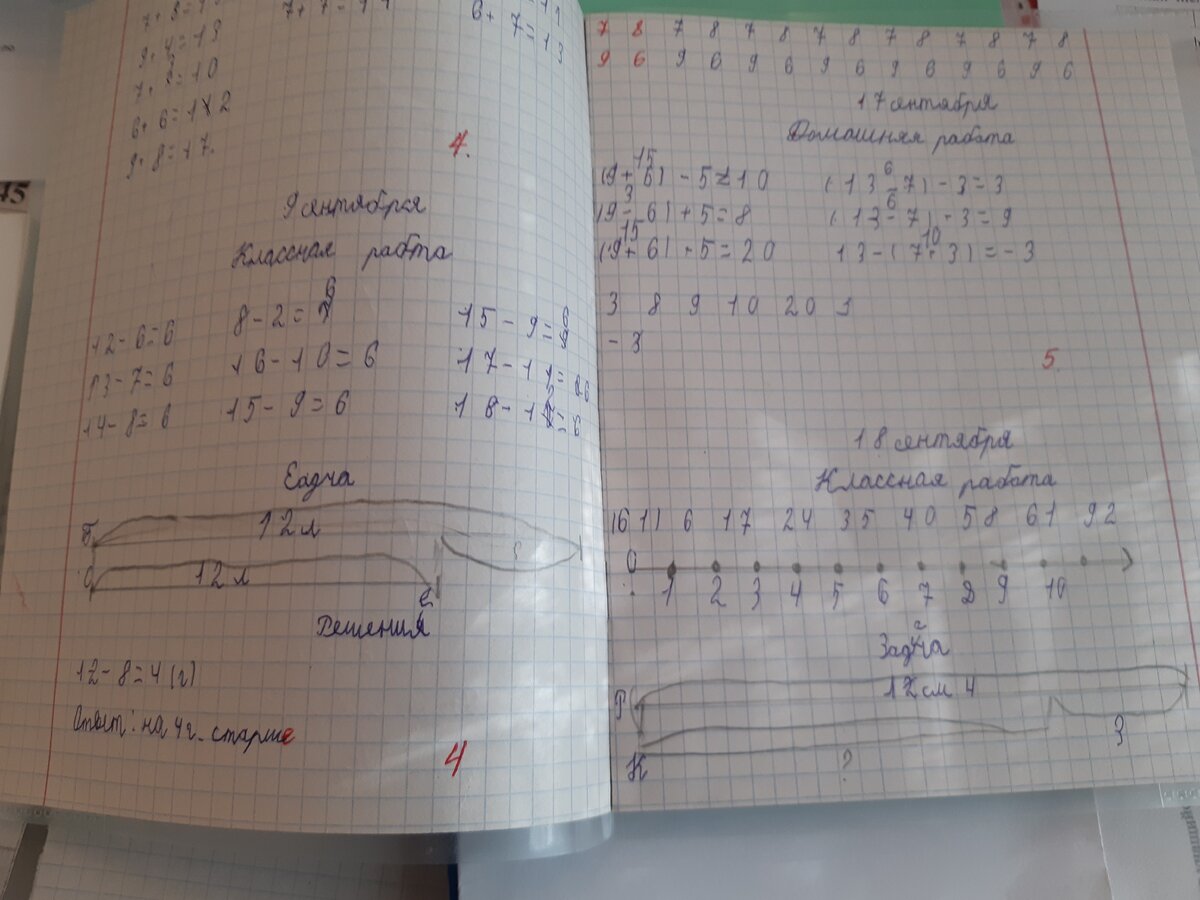 7+7=14
6+7=13
9+4=13
6+6=12
9+8=17.
4.
9 сентября
Классная рабта
12-6=6 8-2=6 15-9=6
13-7=6 16-10=6 17-11=6
14-8=6 15-9=6 18-12=6
Еадча
Т 12 л
С 12 л
Решения
12-8=4 (г)
Ответ: на 4 г. старше
4
7 8 7 8 7 8 7 8 7 8 7 8 7 8
9 6 9 6 9 6 9 6 9 6 9 6 9 6
17 сентября
Домашняя работа
15 6
(9+6)-5=10 (13-7)-3=3
3 6
(9-6)+5=8 (13-7)+3=9
15 10
(9+6)+5=20 13-(7+3)=-3
3 8 9 10 20 3
-3
5
18 сентября
Классная работа
(61) 6 17 24 35 40 58 61 92
0 1 2 3 4 5 6 7 8 9 10
Задча
Р 12 см 4
3
К ?